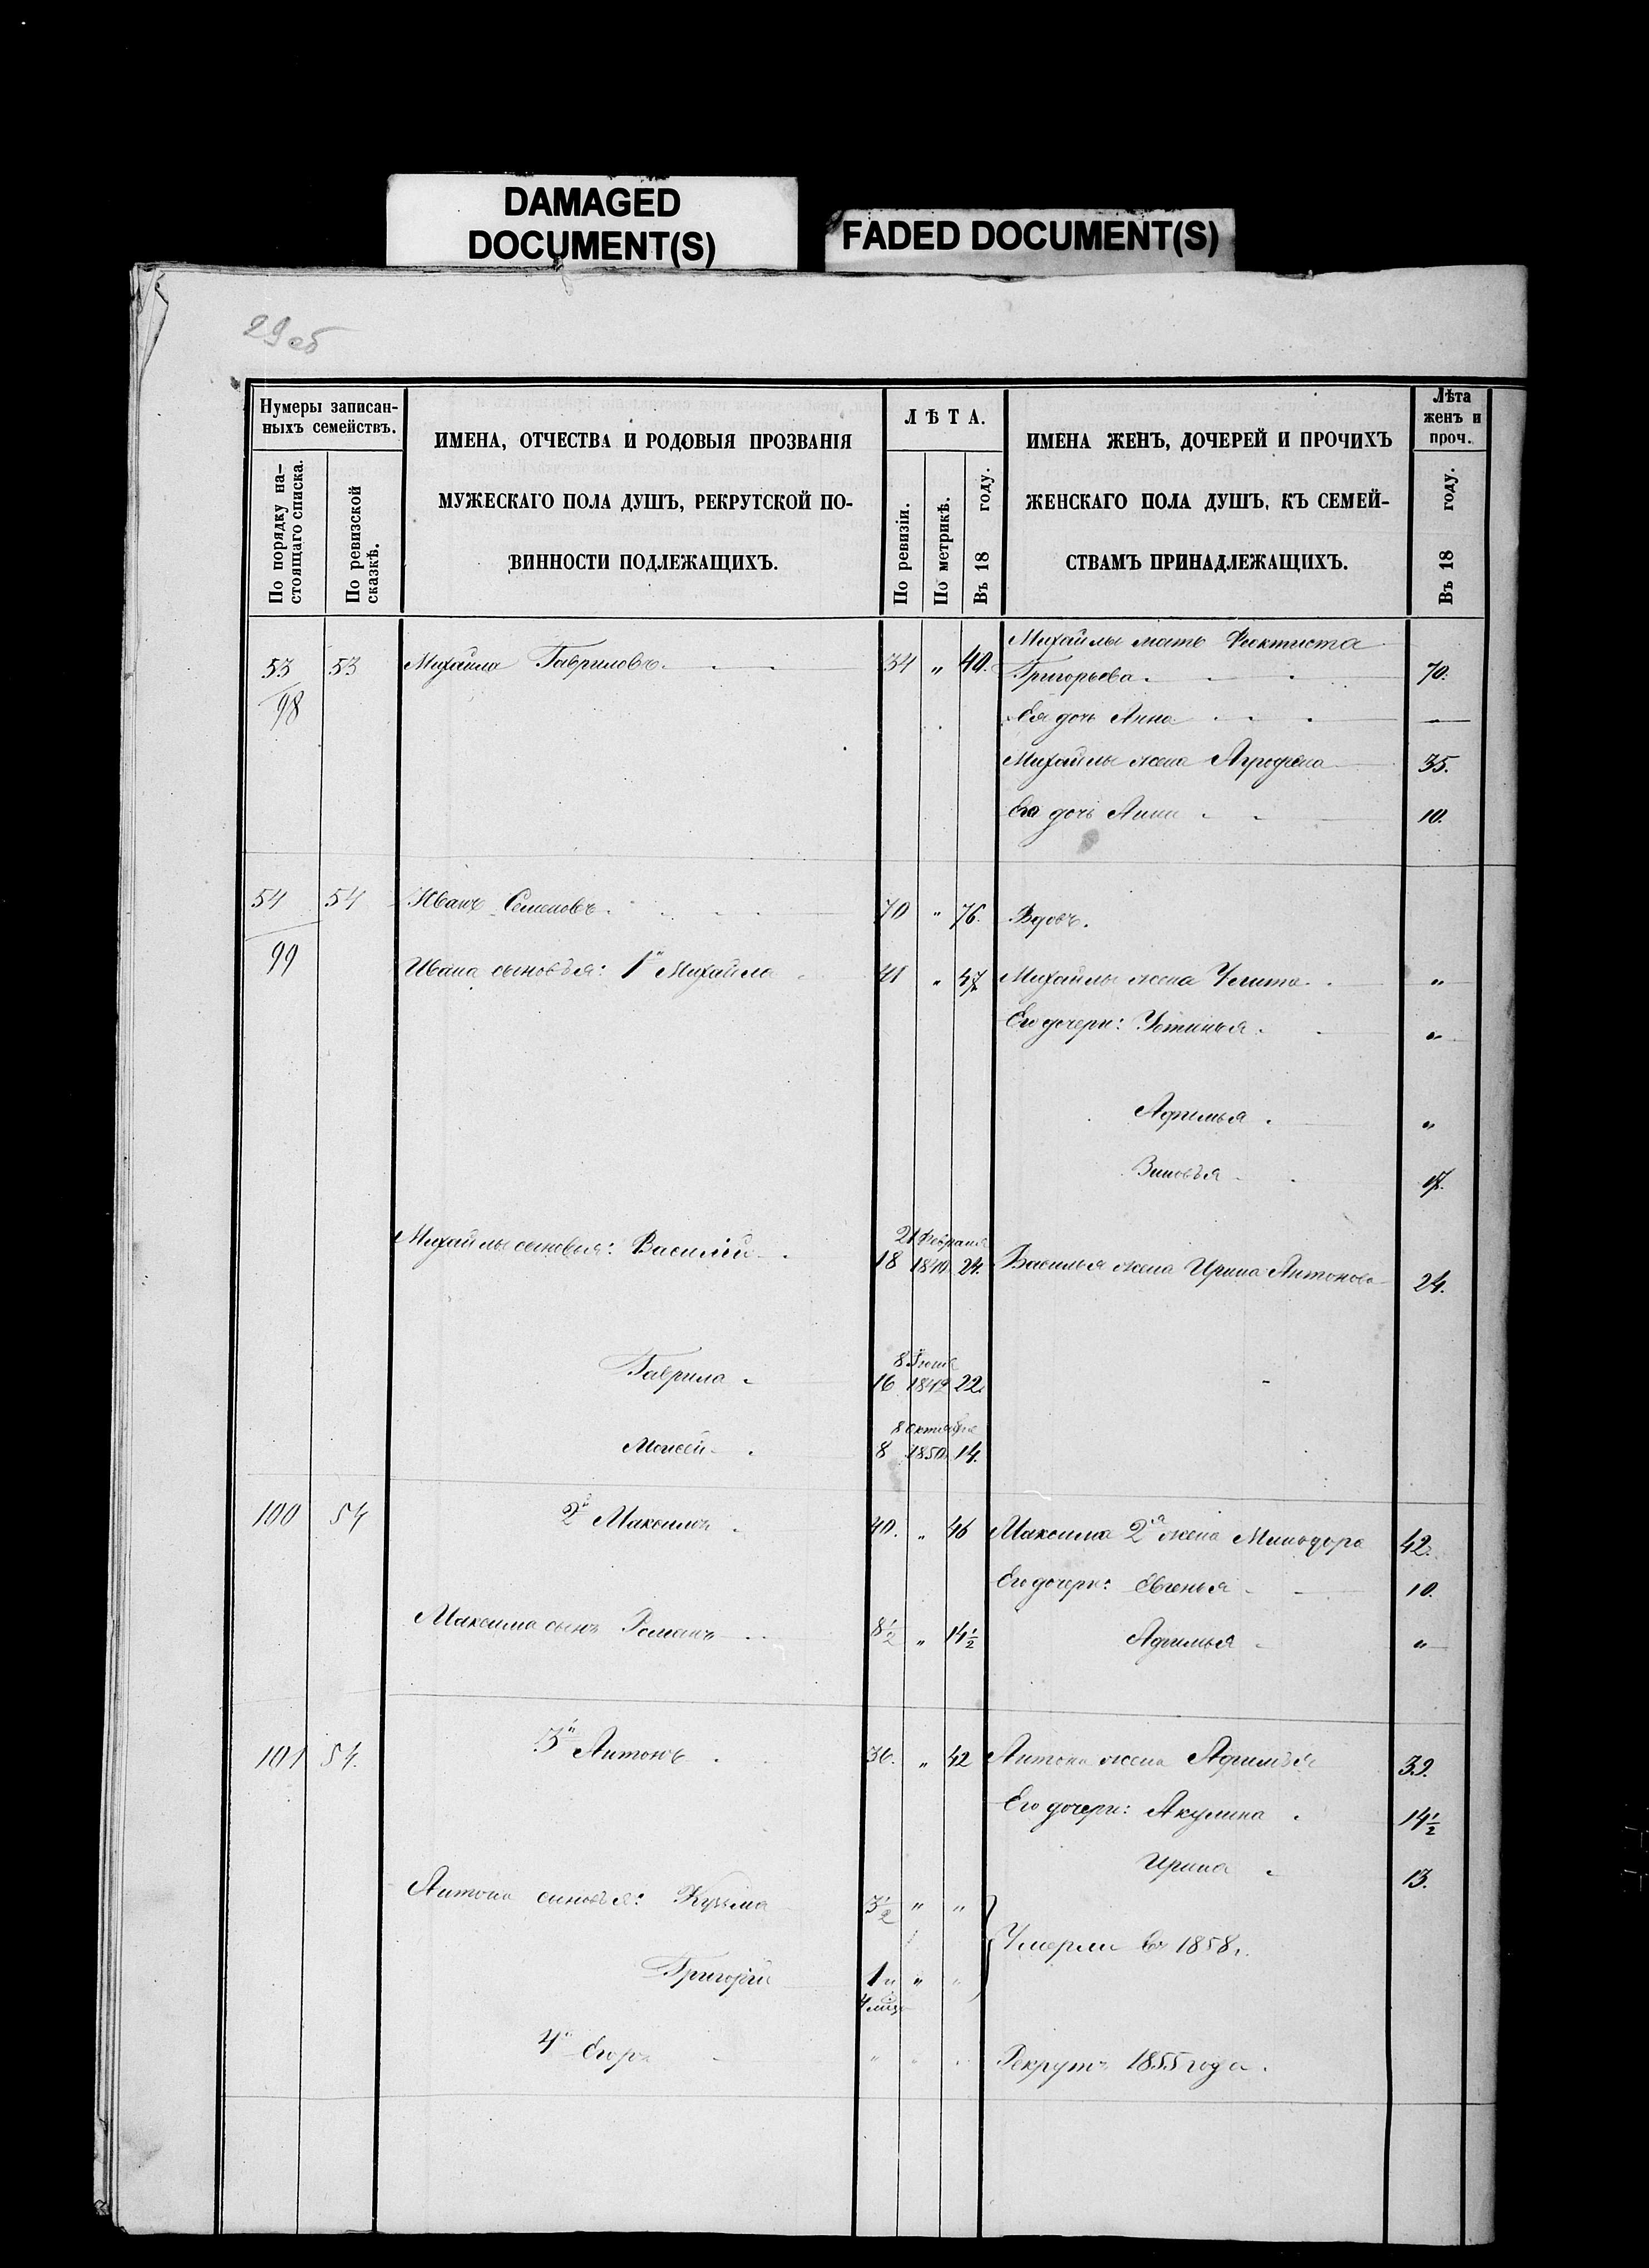 DAMAGED
DOCUMENT(S)
FADED DOCUMENT(S)
29 об
Нумеры записан-
ныхъ семействъ.
По порядку на-
стоящаго списка.
По ревизской
сказкѣ.
ИМЕНА, ОТЧЕСТВА И РОДОВЫЯ ПРОЗВАНІЯ
МУЖЕСКАГО ПОЛА ДУШЪ, РЕКРУТСКОЙ ПО-
ВИННОСТИ ПОДЛЕЖАЩИХЪ.
ЛѢТА.
По ревизіи.
По метрикѣ.
Въ 18 году.
ИМЕНА ЖЕНЪ, ДОЧЕРЕЙ И ПРОЧИХЪ
ЖЕНСКАГО ПОЛА ДУШЪ, КЪ СЕМЕЙ-
СТВАМЪ ПРИНАДЛЕЖАЩИХЪ.
Лѣта
женъ и
проч.
Въ 18 году.
Михайлы мать Фектиста
53 53 Михайла Гавриловъ. 34 " 40. Григорьева. 70.
98 Ея дочь Анна —
Михайлы жена Агрофена 35.
Его дочь Анна 10.
54 54 Иванъ Семеновъ. 70 " 76. Вдовъ.
99 Ивана сыновья: 1й Михайла 41 " 47 Михайлы жена Улита "
Его дочери: Устинья. "
Афимья. "
Зиновья 17.
21 Февраля
Михайлы сыновья: Василій 18 1840 24. Василья жена Ирина Антонова 24.
8 Іюня
Гаврила 16 1842 22.
8 Октября
Моисей 8 1850 14.
100 54 2й Максимъ 40. " 46 Максима 2я жена Минодора 42.
Его дочери: Евгенья 10.
Максима сынъ Романъ 8 1/2 " 14 1/2 Афимья "
101 54. 3й Антонъ 36. " 42 Антона жена Афимья 39.
Его дочери: Акулина 14 1/2
Ирина 13.
Антона сыновья: Кузьма 3 1/2 " "
Умерли въ 1858 г.
Григорій 1 и " "
4 мѣс
4й Егоръ " " " Рекрутъ 1855 года.